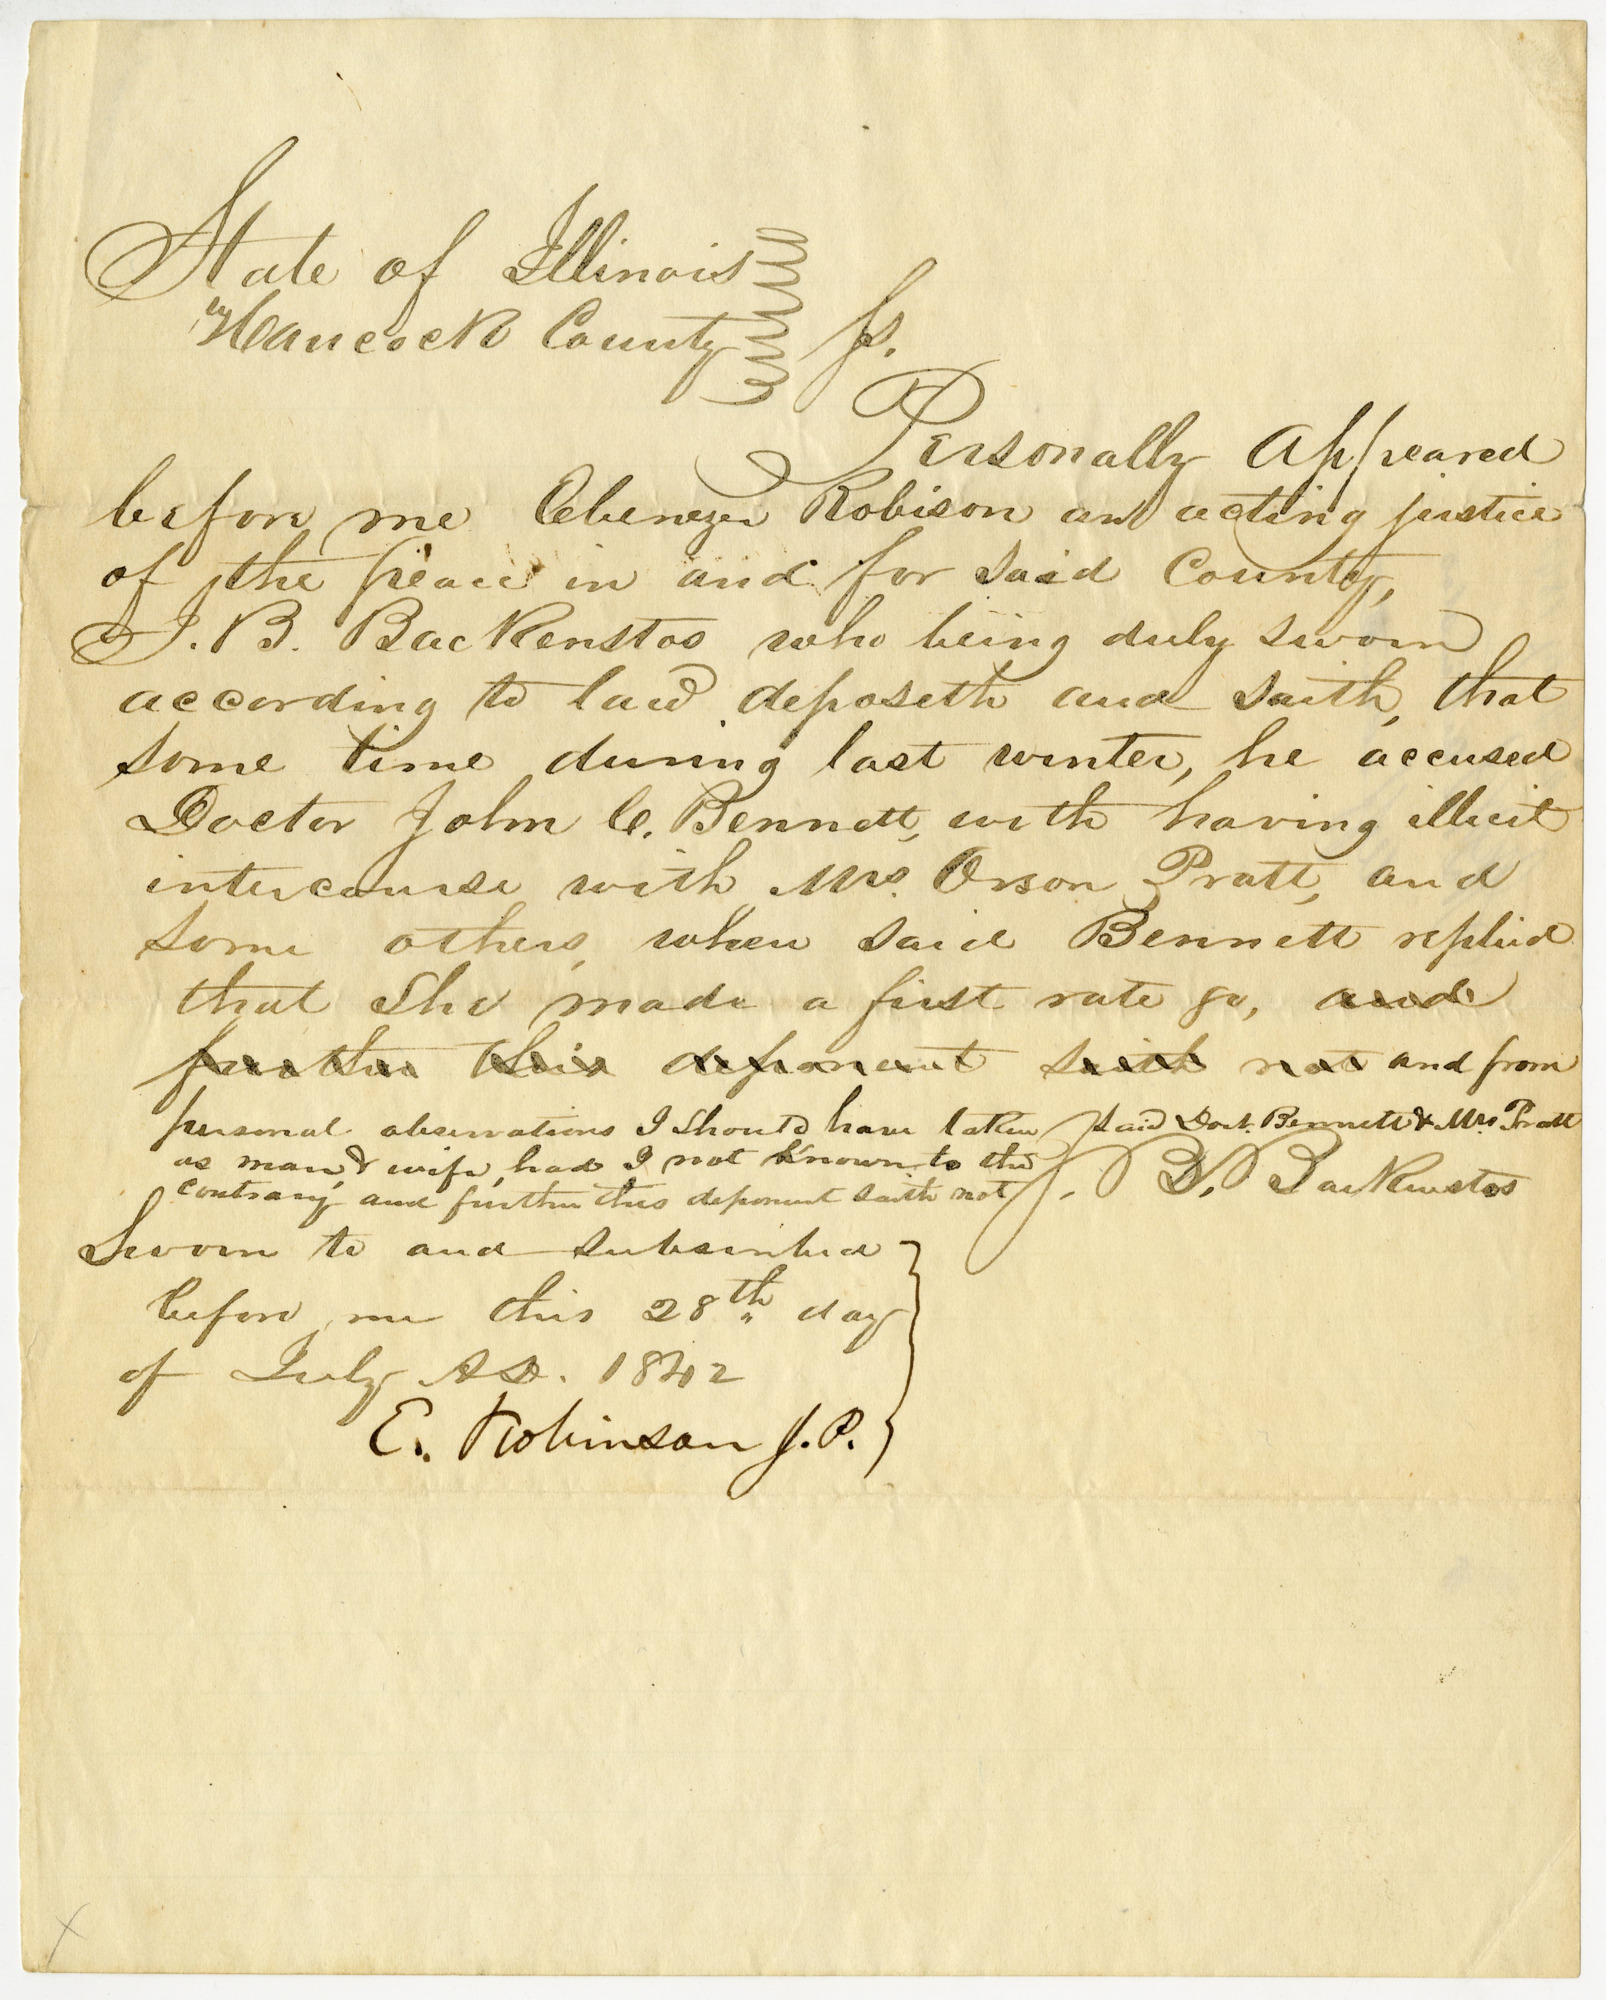 State of Illinois
Hancock County ss.
Personally Appeared
before me Ebenezer Robison an acting justice
of the peace in and for said County,
J. B. Backenstos who being duly sworn
according to law deposeth and saith, that
some time during last winter, he accused
Doctor John C. Bennett, with having illicit
intercourse with Mrs. Orson Pratt, and
some others, when said Bennett replied
that she made a first rate go, and
further this deponent saith not and from
personal observations I should have taken said Doct. Bennett & Mrs Pratt
as man & wife, had I not known to the
contrary and further this deponent saith not J. B. Backenstos
Sworn to and subscribed
before me this 28th day
of July AD. 1842
E. Robinson J.P.